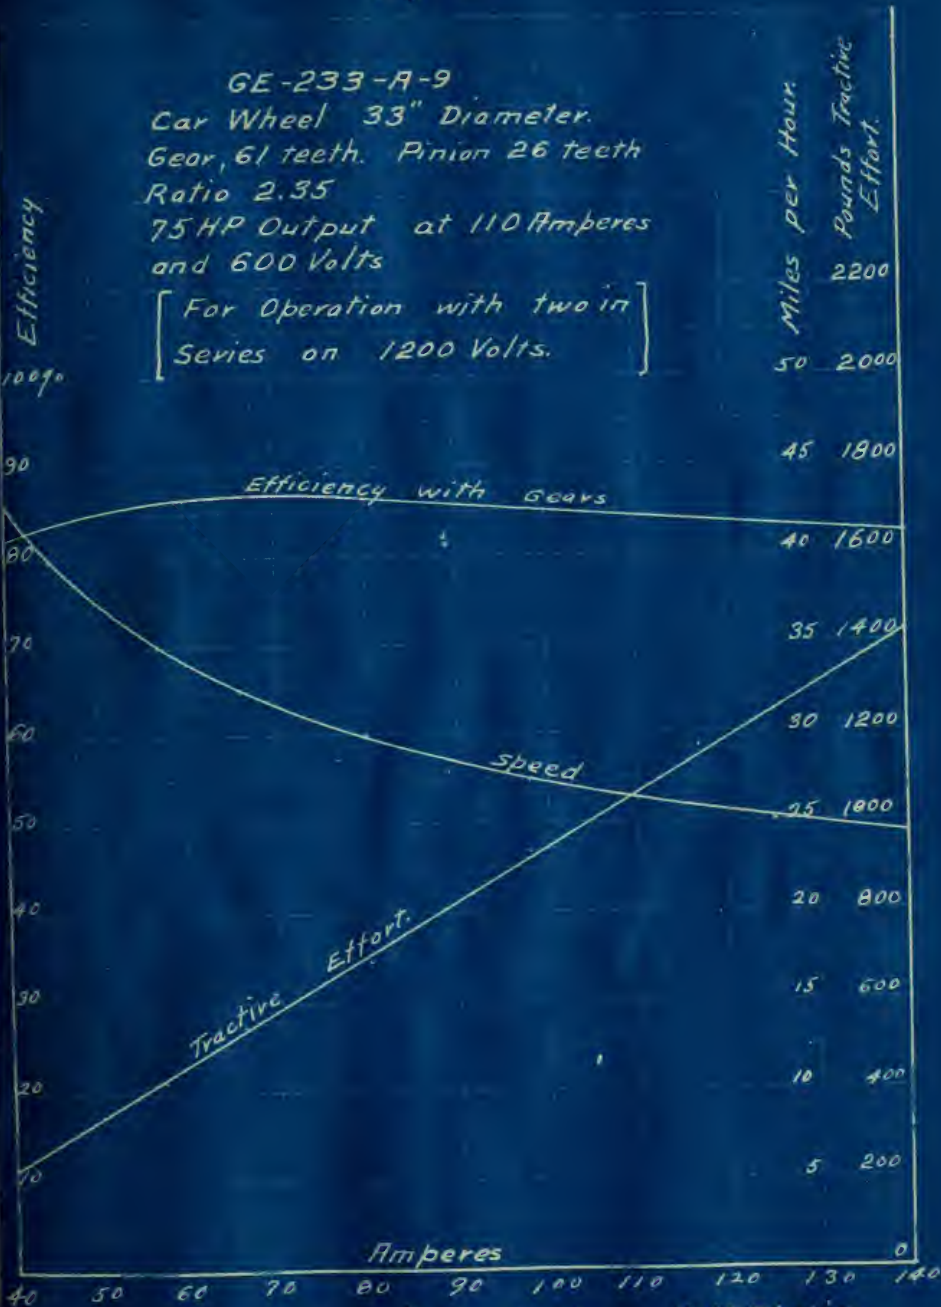 GE-233-A-9
Car Wheel 33" Diameter.
Gear, 61 teeth. Pinion 26 teeth
Ratio 2.35
75 HP Output at 110 Amperes
and 600 Volts
[For Operation with two in
Series on 1200 Volts.]
Efficiency
100%
90
80
70
60
50
40
30
20
10
Miles per Hour.
50
45
40
35
30
25
20
15
10
5
Pounds Tractive
Effort.
2200
2000
1800
1600
1400
1200
1000
800
600
400
200
0
Efficiency with Gears
Speed
Tractive Effort.
Amperes
40 50 60 70 80 90 100 110 120 130 140